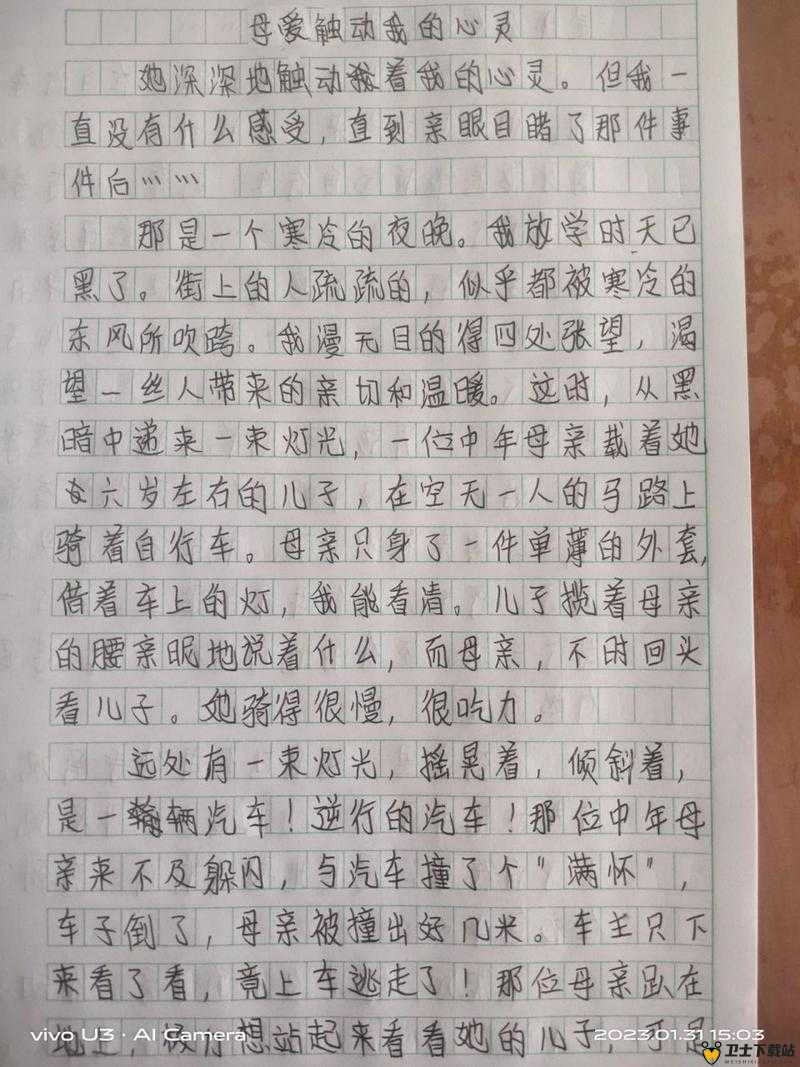 母爱触动我的心灵
她深深地触动着我的心灵。但我一
直没有什么感受，直到亲眼目睹了那件事
件后……
那是一个寒冷的夜晚。我放学时天已
黑了。街上的人疏疏的，似乎都被寒冷的
东风所吹跨。我漫无目的得四处张望，渴
望一丝人带来的亲切和温暖。这时，从黑
暗中递来一束灯光，一位中年母亲载着她
六岁左右的儿子，在空无一人的马路上
骑着自行车。母亲只身了一件单薄的外套，
借着车上的灯，我能看清。儿子揽着母亲
的腰亲昵地说着什么，而母亲，不时回头
看儿子。她骑得很慢，很吃力。
远处有一束灯光，摇晃着，倾斜着，
是一辆汽车！逆行的汽车！那位中年母
亲来不及躲闪，与汽车撞了个"满怀"，
车子倒了，母亲被撞出好几米。车主只下
来看了看，竟上车逃走了！那位母亲趴在
地上，很想站起来看看她的儿子，可是
vivo U3 · AI Camera
2023.01.31 15:03
卫士下载站
WEISHIXIAZAIZHAN